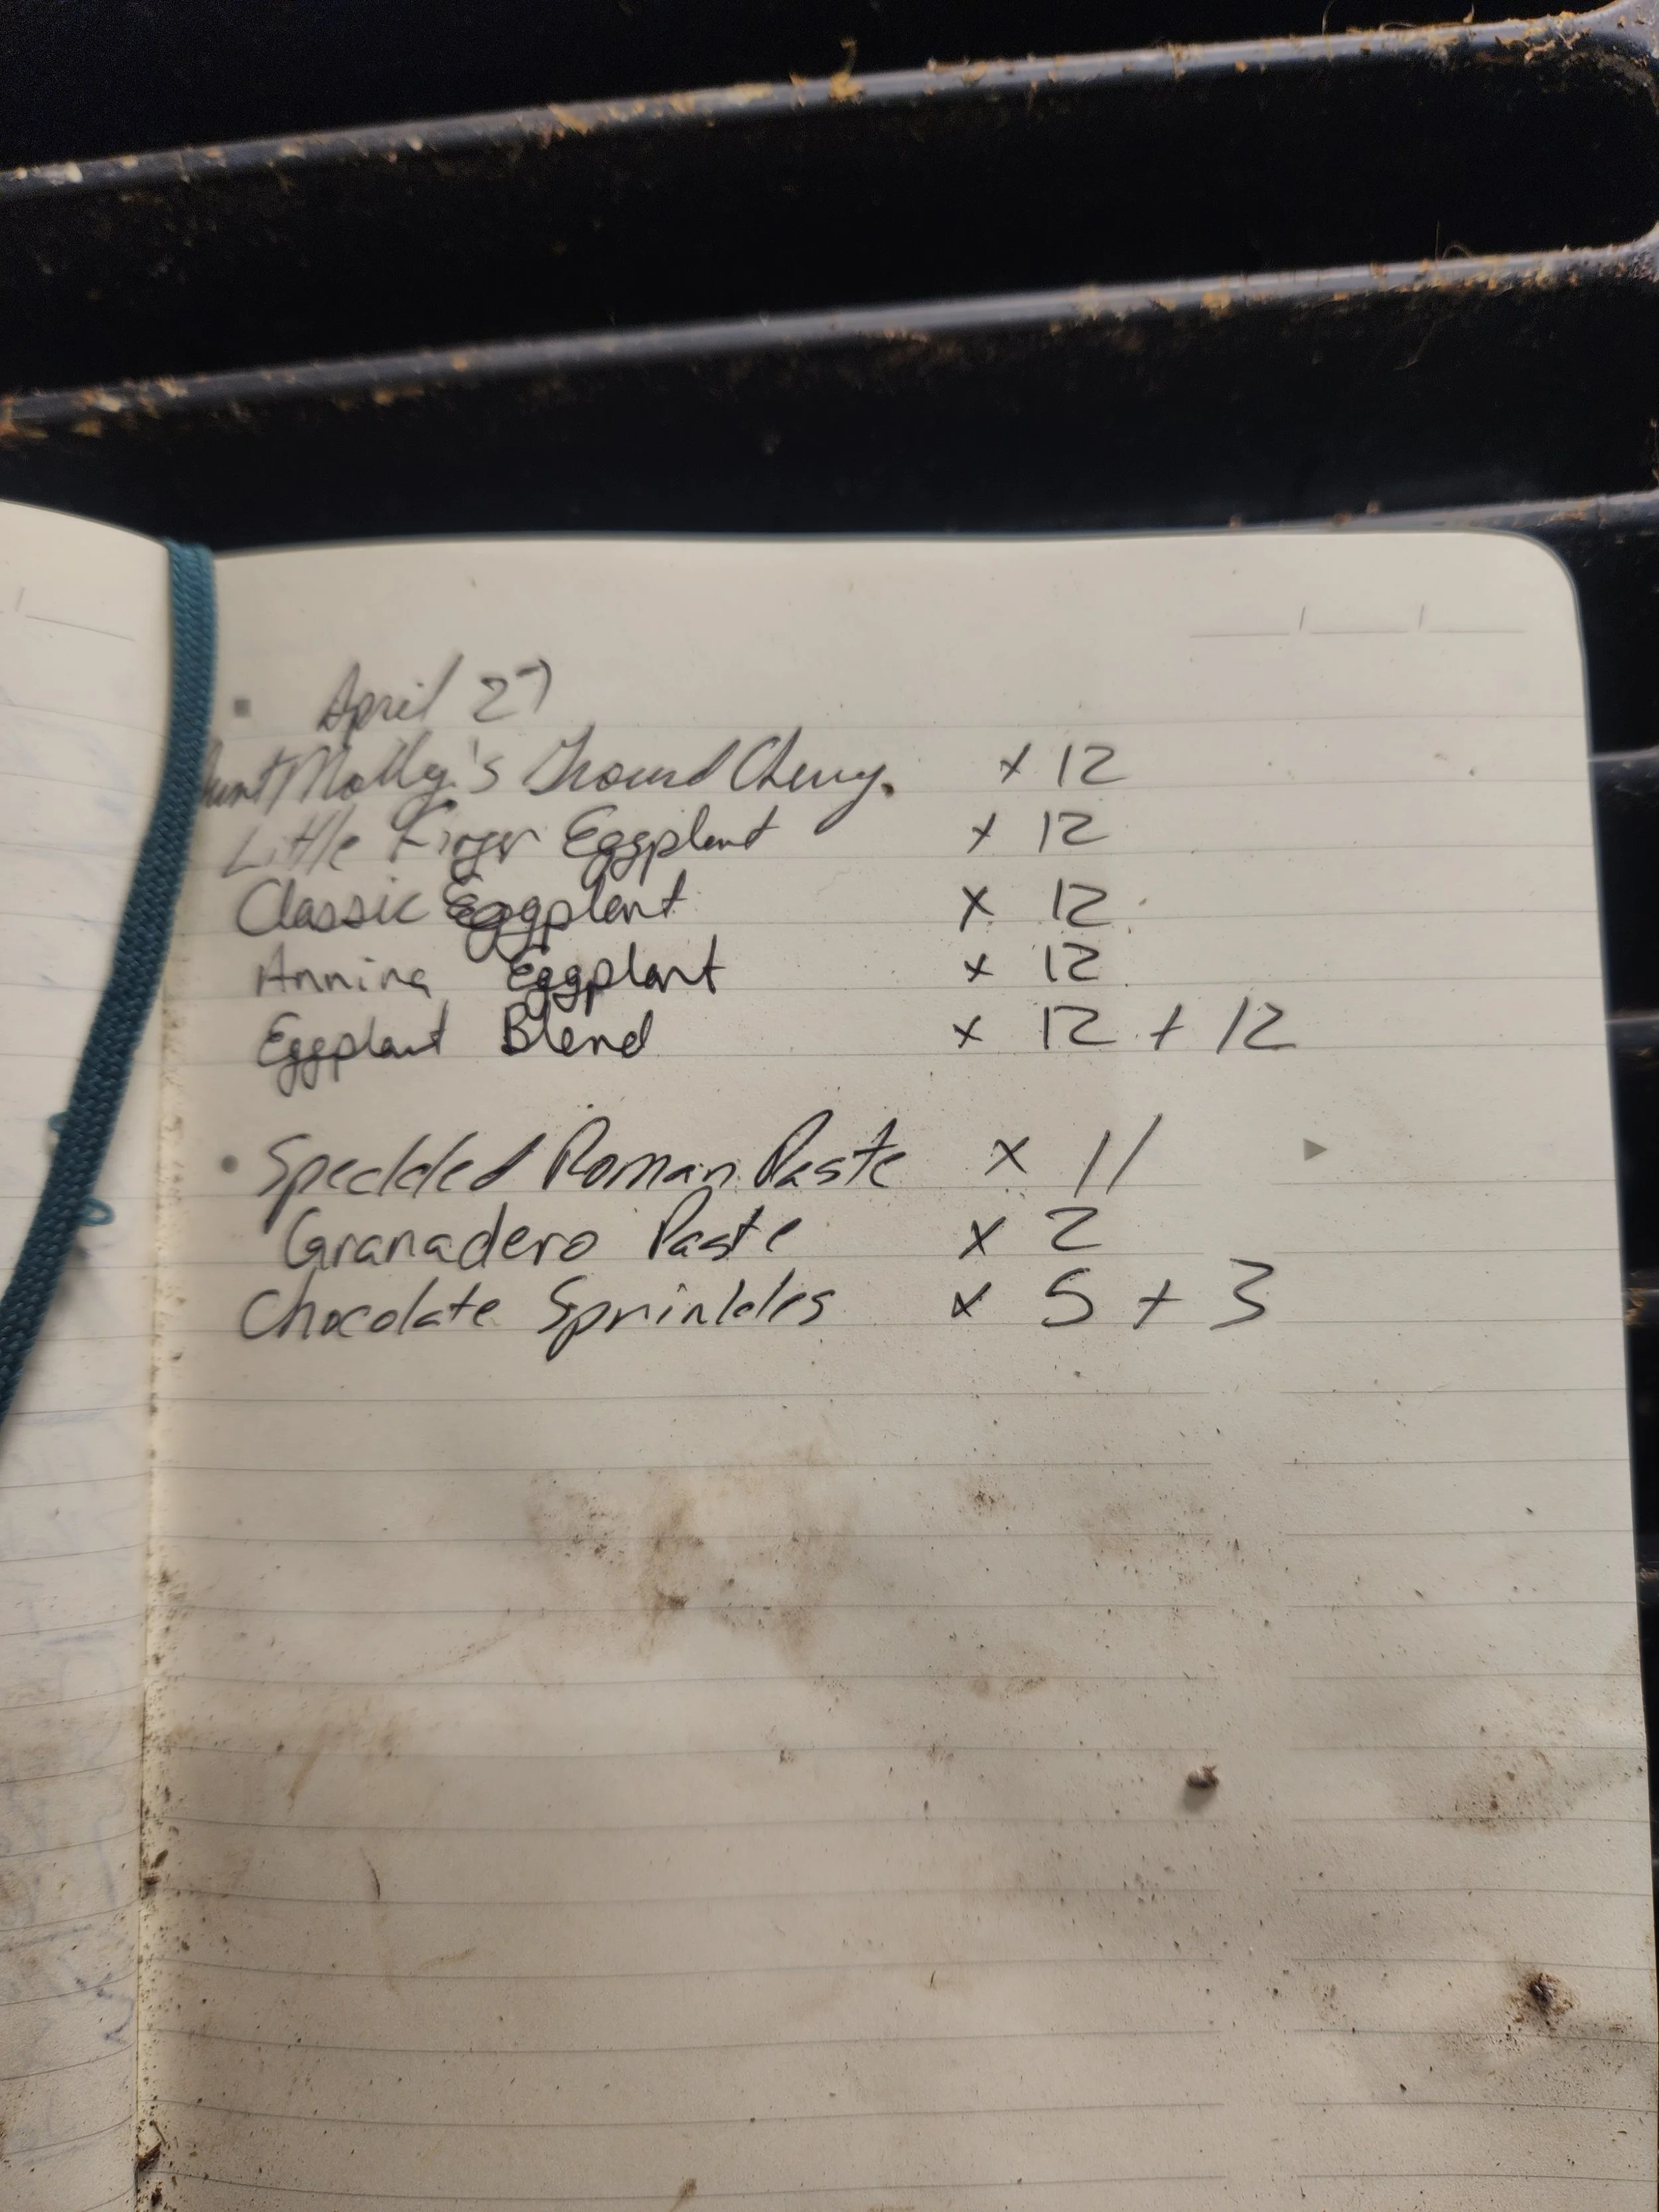 April 27
Aunt Molly's Ground Cherry. x 12
Little Finger Eggplant x 12
Classic Eggplant x 12
Annina Eggplant x 12
Eggplant Blend x 12 + 12
Speckled Roman Paste x 11
Granadero Paste x 2
Chocolate Sprinkles x 5 + 3